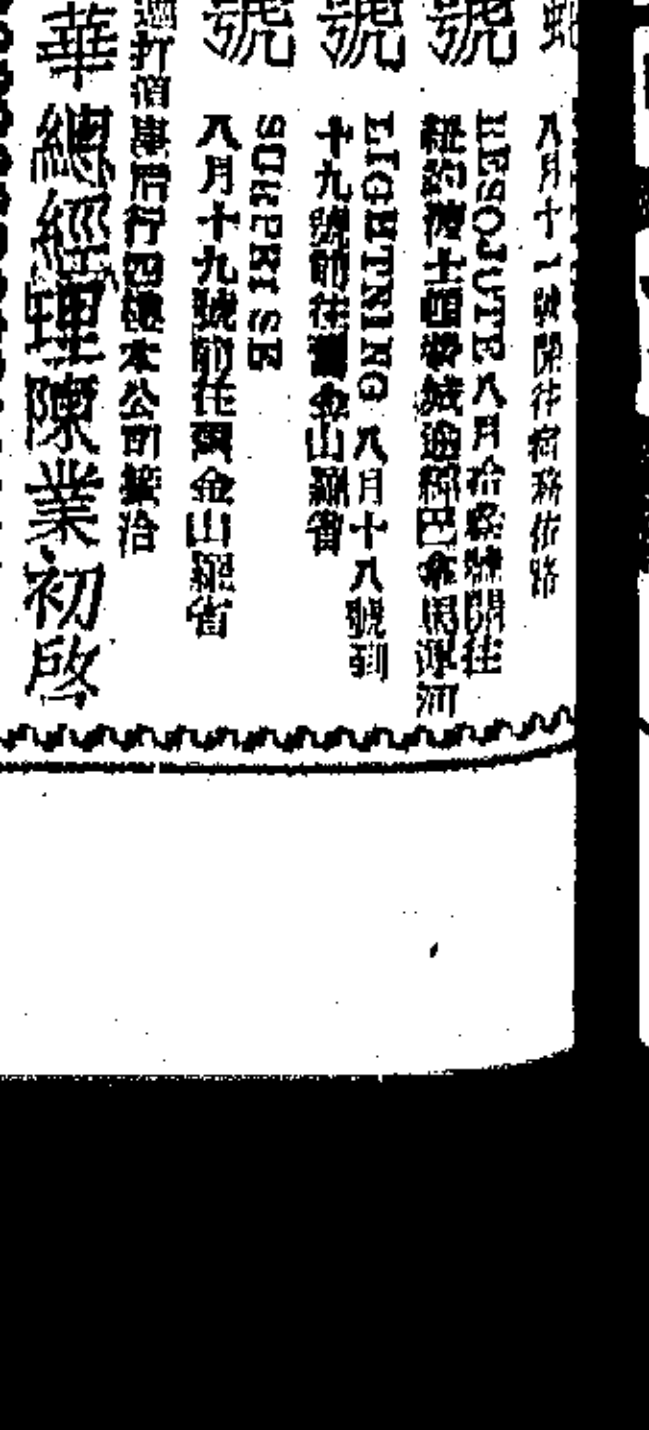 號
八月十一號開往宿務佐路
號
RESOLUTE八月拾陸號開往
紐約博士頓等城逾經巴拿馬運河
號
LIGHTNING八月十八號到
十九號前往舊金山羅省
號
SURPRISE
八月十九號前往舊金山羅省
打 行四樓本公司接洽
華總經理陳業初啟